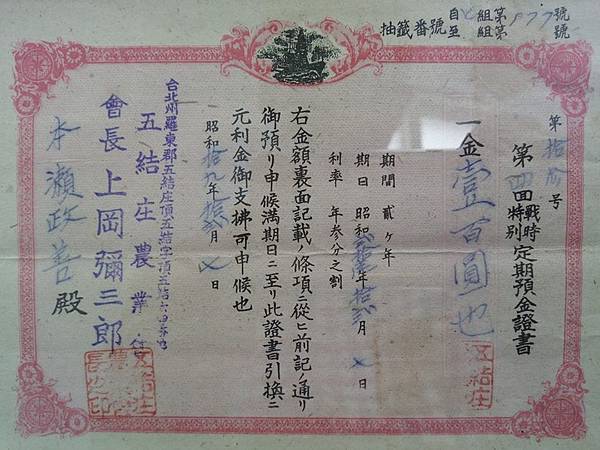 抽籤番號 自 組第 977 號
至 組第 號
第拾參号
第四回 戰時特別 定期預金證書
一金壹百圓也
期間 貳ヶ年
期日 昭和 年拾貳月 七日
利率 年參分之割
右金額裏面記載ノ條項ニ從ヒ前記ノ通リ
御預リ申候滿期日ニ至リ此證書引換ニ
元利金御支拂可申候也
昭和拾九年拾貳月 七日
台北州羅東郡五結庄頂五結字頂五結
五結庄農業會
會長上岡彌三郎
本瀨政善殿
五結庄農業會長之印
五結庄